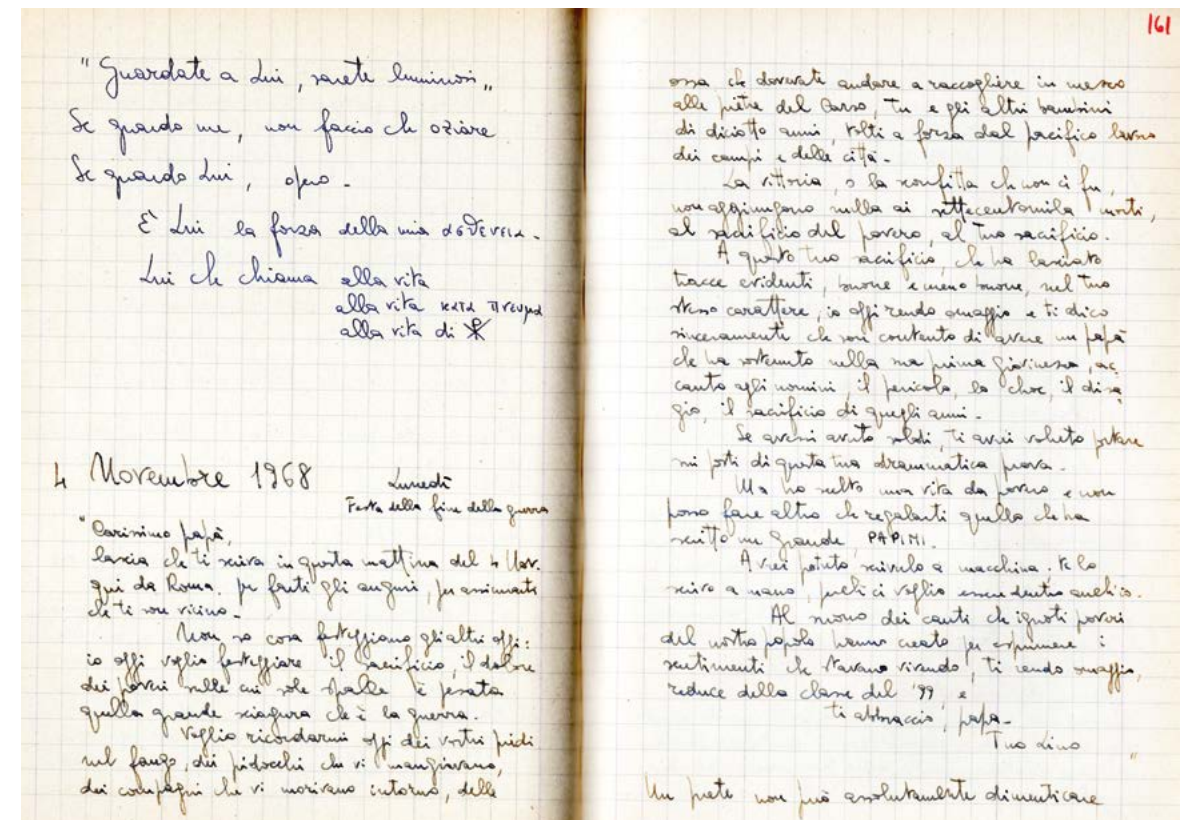 "Guardate a Lui, sarete luminosi„
Se guardo me, non faccio che oziare
Se guardo Lui, opero -
È Lui la forza della mia ασθενεια -
Lui che chiama alla vita
alla vita κατα πνευμα
alla vita di ☧
4 Novembre 1968 Lunedì
Festa della fine della guerra
"Carissimo papà,
lascia che ti scriva in questa mattina del 4 Nov.
qui da Roma. per farti gli auguri, per assicurarti
che ti son vicino -
Non so cosa festeggiano gli altri oggi:
io oggi voglio festeggiare il sacrificio, il dolore
dei poveri sulle cui sole spalle è pesata
quella grande sciagura che è la guerra.
Voglio ricordarmi oggi dei vostri piedi
nel fango, dei pidocchi che vi mangiavano,
dei compagni che vi morivano intorno, delle
161
ossa che dovevate andare a raccogliere in mezzo
alle pietre del Carso, tu e gli altri bambini
di diciotto anni, tolti a forza dal pacifico lavoro
dei campi e delle città -
La vittoria, o la sconfitta che non ci fu,
non aggiungono nulla ai settecentomila morti,
al sacrificio del povero, al tuo sacrificio.
A questo tuo sacrificio, che ha lasciato
tracce evidenti, buone e meno buone, nel tuo
stesso carattere, io oggi rendo omaggio e ti dico
sinceramente che son contento di avere un papà
che ha sostenuto nella sua prima giovinezza, ac
canto agli uomini, il pericolo, lo choc, il disa
gio, il sacrificio di quegli anni -
Se avessi avuto soldi, ti avrei voluto portare
sui posti di questa tua drammatica prova -
Ma ho scelto una vita da povero e non
posso fare altro che regalarti quello che ha
scritto un grande, PAPINI.
Avrei potuto scriverlo a macchina. te lo
scrivo a mano, perché ci voglio essere dentro anch'io.
Al suono dei canti che ignoti poveri
del nostro popolo hanno creato per esprimere i
sentimenti che stavano vivendo, ti rendo omaggio,
reduce della classe del '99, e
ti abbraccio, papà -
Tuo Lino
"
Un prete non può assolutamente dimenticare